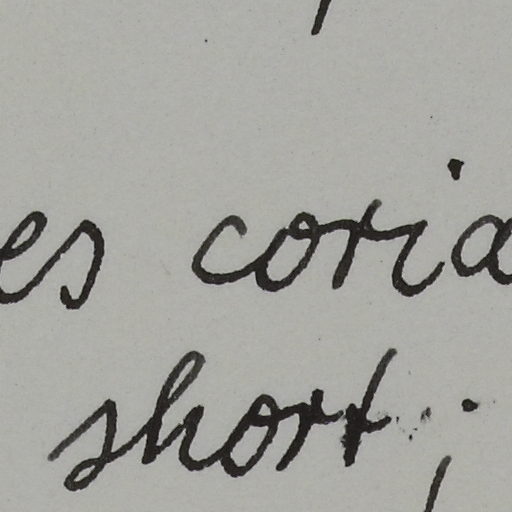 es coria
short;